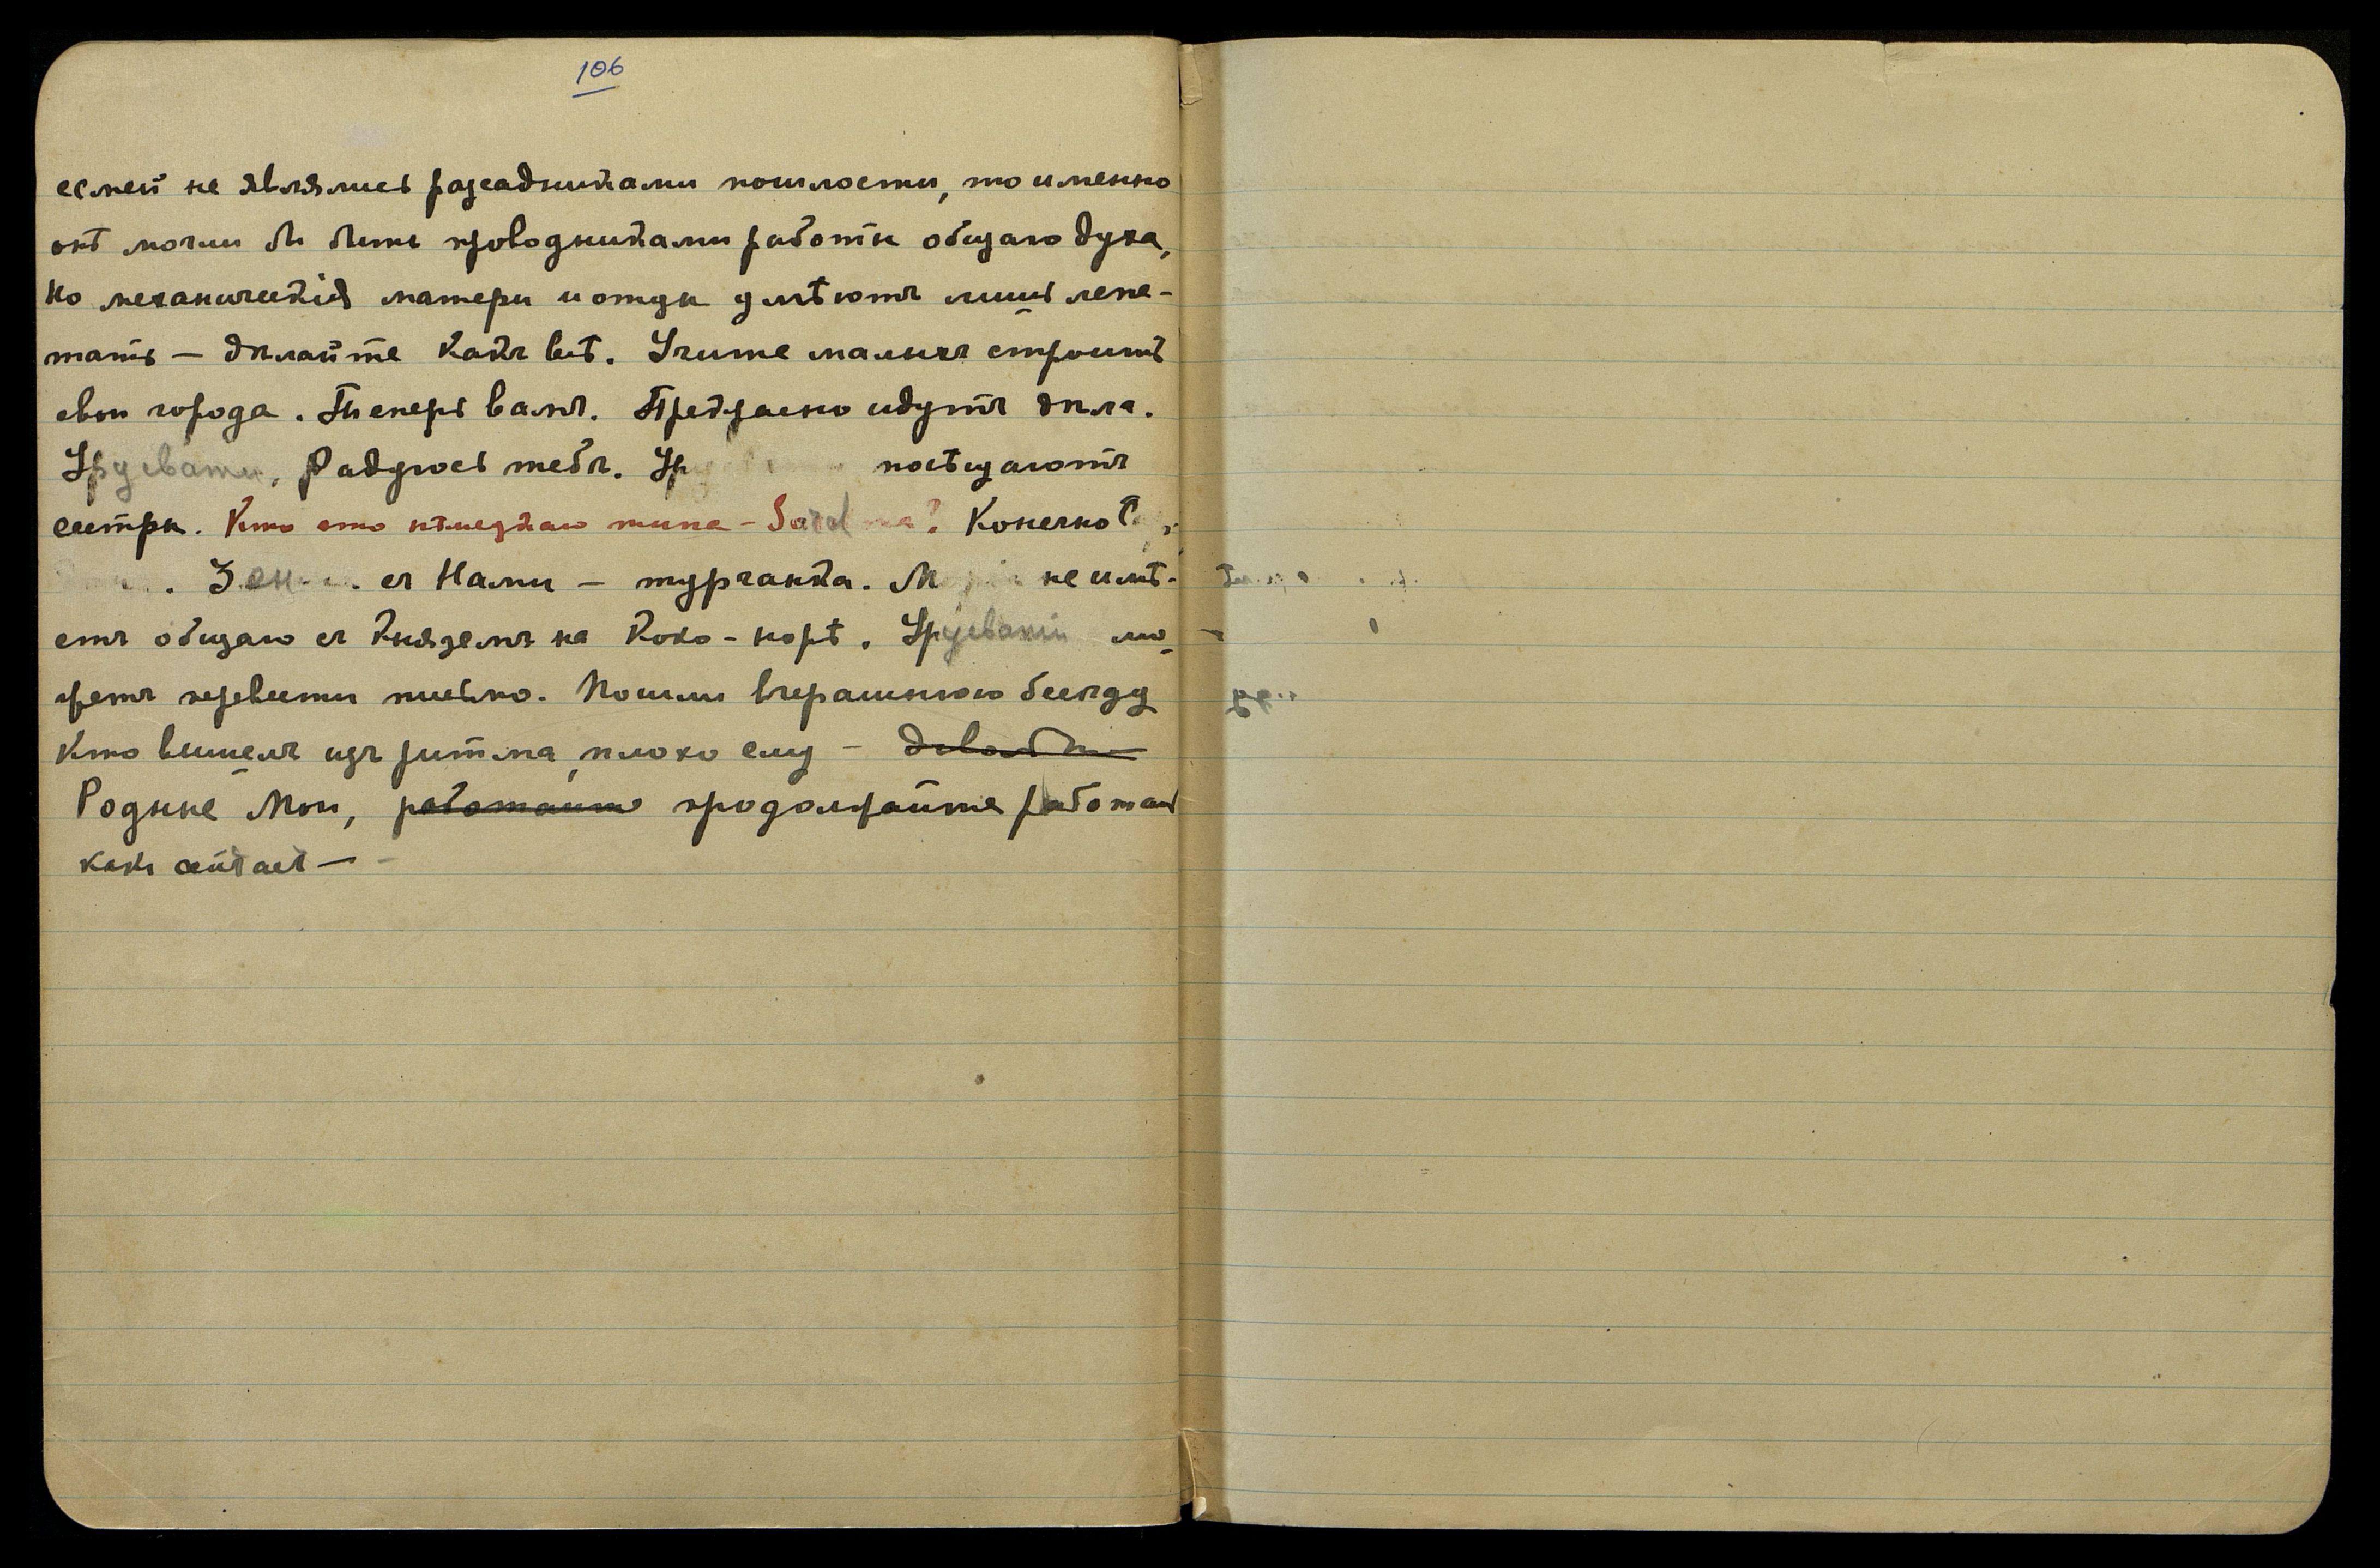 106
семей не являлись разсадниками пошлости, то именно
онѣ могли бы быть проводниками работы общаго духа,
Но механическія матери и отцы умѣютъ лишь лепе-
тать — дѣлайте какъ всѣ. Учите малыхъ строить
свои города. Теперь вамъ. Прекрасно идутъ дѣла.
Урусвати, Радуюсь тебѣ. посѣщаютъ
сестры. Кто это нѣмецкаго типа - Конечно
съ Нами — турчанка. не имѣ-
етъ общаго съ Княземъ на Коко-норѣ. Урусвати мо-
жетъ перевести письмо. Пошли вчерашнюю бесѣду
Кто вышелъ изъ ритма, плохо ему —
Родные Мои, работайте продолжайте работать
какъ сейчасъ —